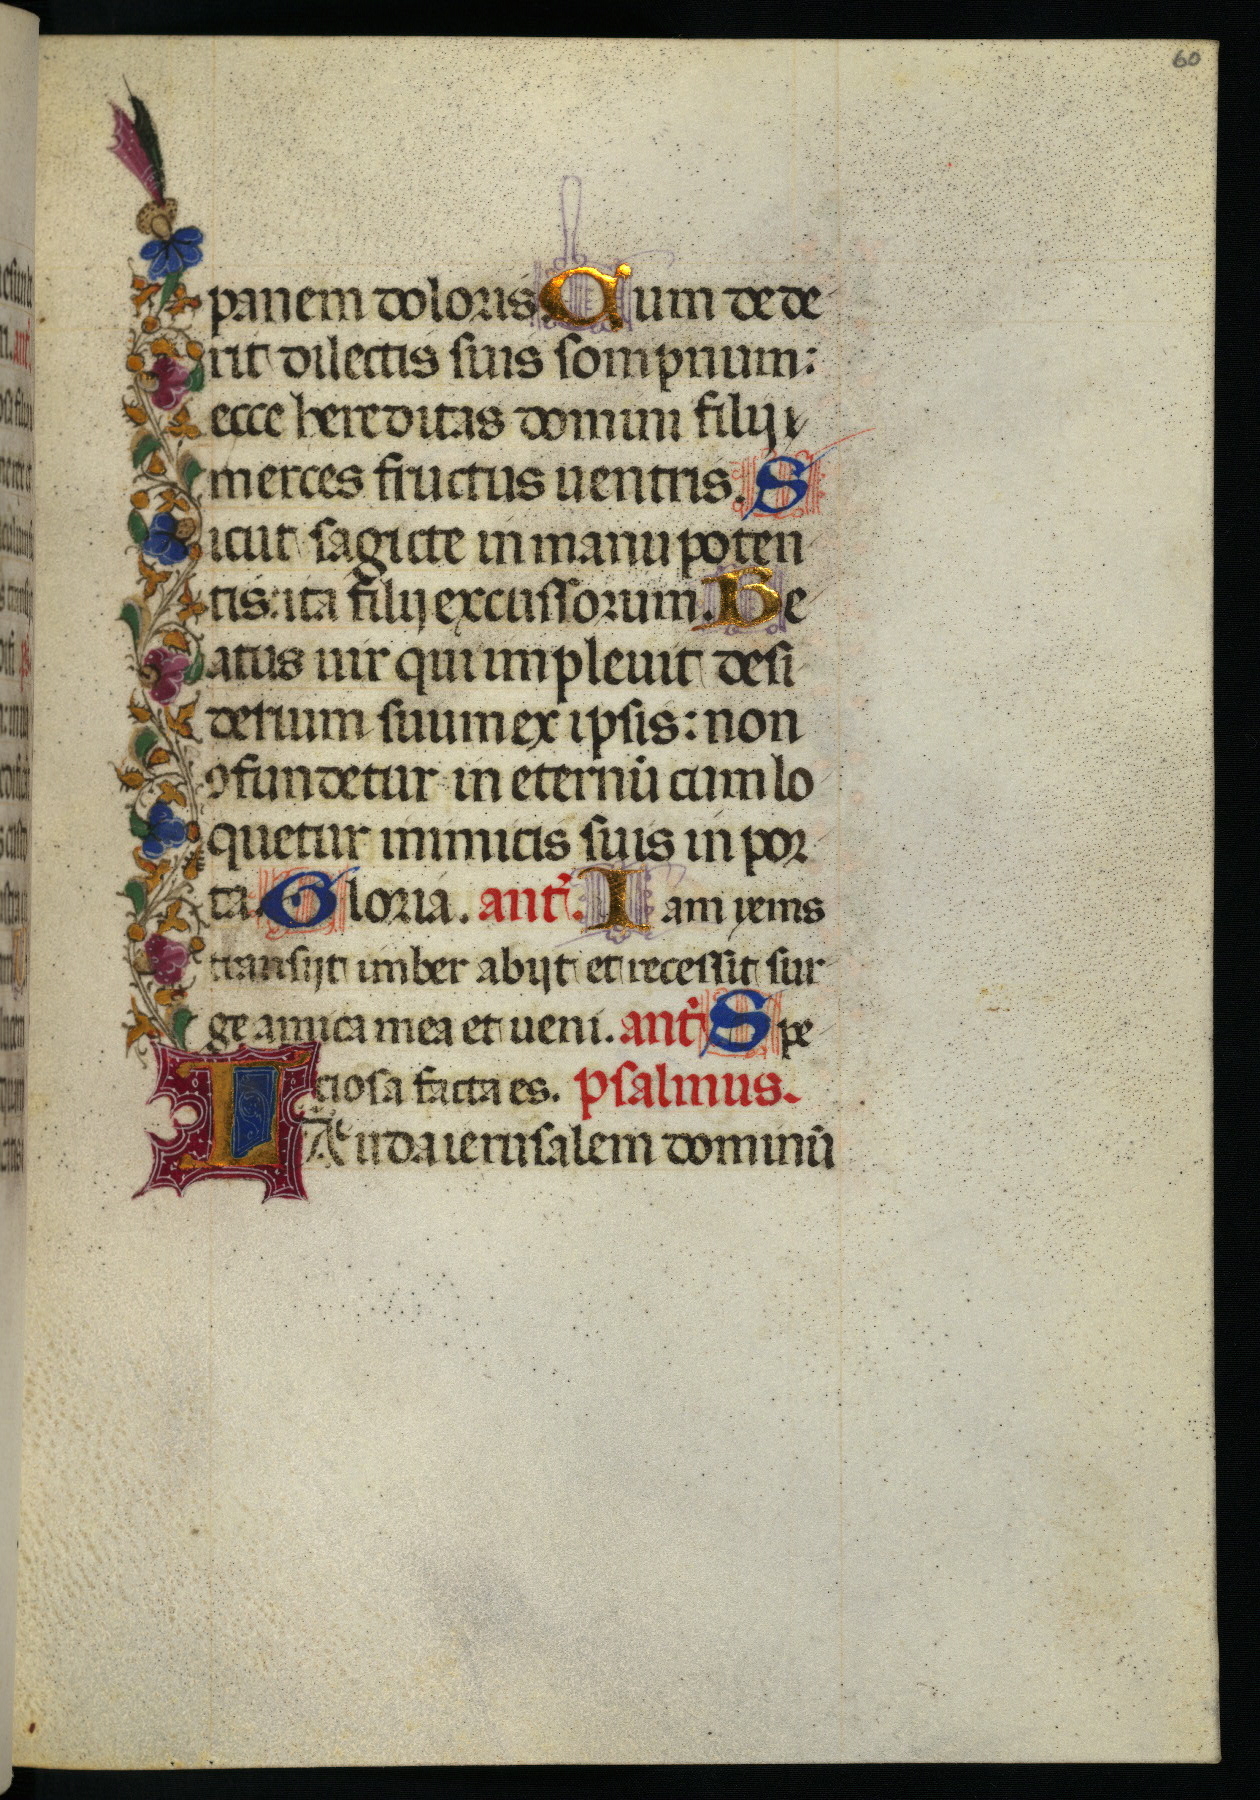 60
panem doloris Cum dede
rit dilectis suis sompnum:
ecce hereditas domini filij
merces fructus uentris. S
icut sagicte in manu poten
tis: ita filij excussorum. Be
atus uir qui impleuit desi
derium suum ex ipsis: non
ꝯfundetur in eternū cum lo
quetur inimicis suis in por
ta. Gloria. ant̃. Iam yems
transijt imber abijt et recessit sur
ge amica mea et ueni. ant̃ Spe
ciosa facta es. psalmus.
LAuda ierusalem dominū